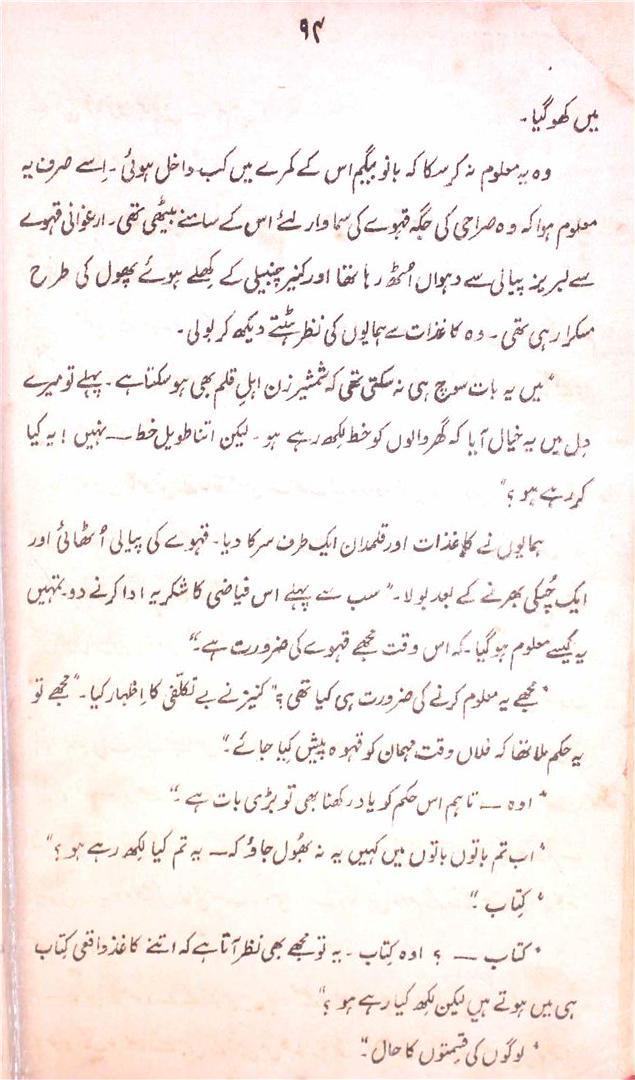 ۹۴
میں کھو گیا۔
وہ یہ معلوم نہ کر سکا کہ بانو بیگم اس کے کمرے میں کب داخل ہوئی۔ اِسے صرف یہ
معلوم ہوا کہ وہ صراحی کی جگہ قہوے کی سماوار لئے اس کے سامنے بیٹھی تھی۔ ارغوانی قہوے
سے لبریز پیالی سے دہواں اُٹھ رہا تھا اور کنیز چنبیلی کے کھلے ہوئے پھول کی طرح
مسکرا رہی تھی۔ وہ کاغذات سے ہمایوں کی نظر ہٹتے دیکھ کر بولی۔
"میں یہ بات سوچ ہی نہ سکتی تھی کہ شمشیر زن اہلِ قلم بھی ہو سکتا ہے۔ پہلے تو میرے
دِل میں یہ خیال آیا کہ گھر والوں کو خط لکھ رہے ہو۔ لیکن اتنا طویل خط — نہیں! یہ کیا
کر رہے ہو؟"
ہمایوں نے کاغذات اور قلمدان ایک طرف سرکا دیا۔ قہوے کی پیالی اُٹھائی اور
ایک چُسکی بھرنے کے بعد بولا۔ "سب سے پہلے اس فیاضی کا شکریہ ادا کرنے دو۔ تمہیں
یہ کیسے معلوم ہو گیا۔ کہ اس وقت مجھے قہوے کی ضرورت ہے۔"
"مجھے یہ معلوم کرنے کی ضرورت ہی کیا تھی؟" کنیز نے بے تکلّفی کا اِظہار کیا۔ "مجھے تو
یہ حکم ملا تھا کہ فلاں وقت مہمان کو قہوہ پیش کیا جائے۔"
"اوہ — تاہم اس حکم کو یاد رکھنا بھی تو بڑی بات ہے۔"
"اب تم باتوں باتوں میں کہیں یہ نہ بھُول جاؤ کہ — یہ تم کیا لکھ رہے ہو؟"
"کتاب۔"
"کتاب — ؟ اوہ کتاب۔ یہ تو مجھے بھی نظر آتا ہے کہ اتنے کاغذ واقعی کتاب
ہی میں ہوتے ہیں لیکن لکھ کیا رہے ہو؟"
"لوگوں کی قسمتوں کا حال۔"